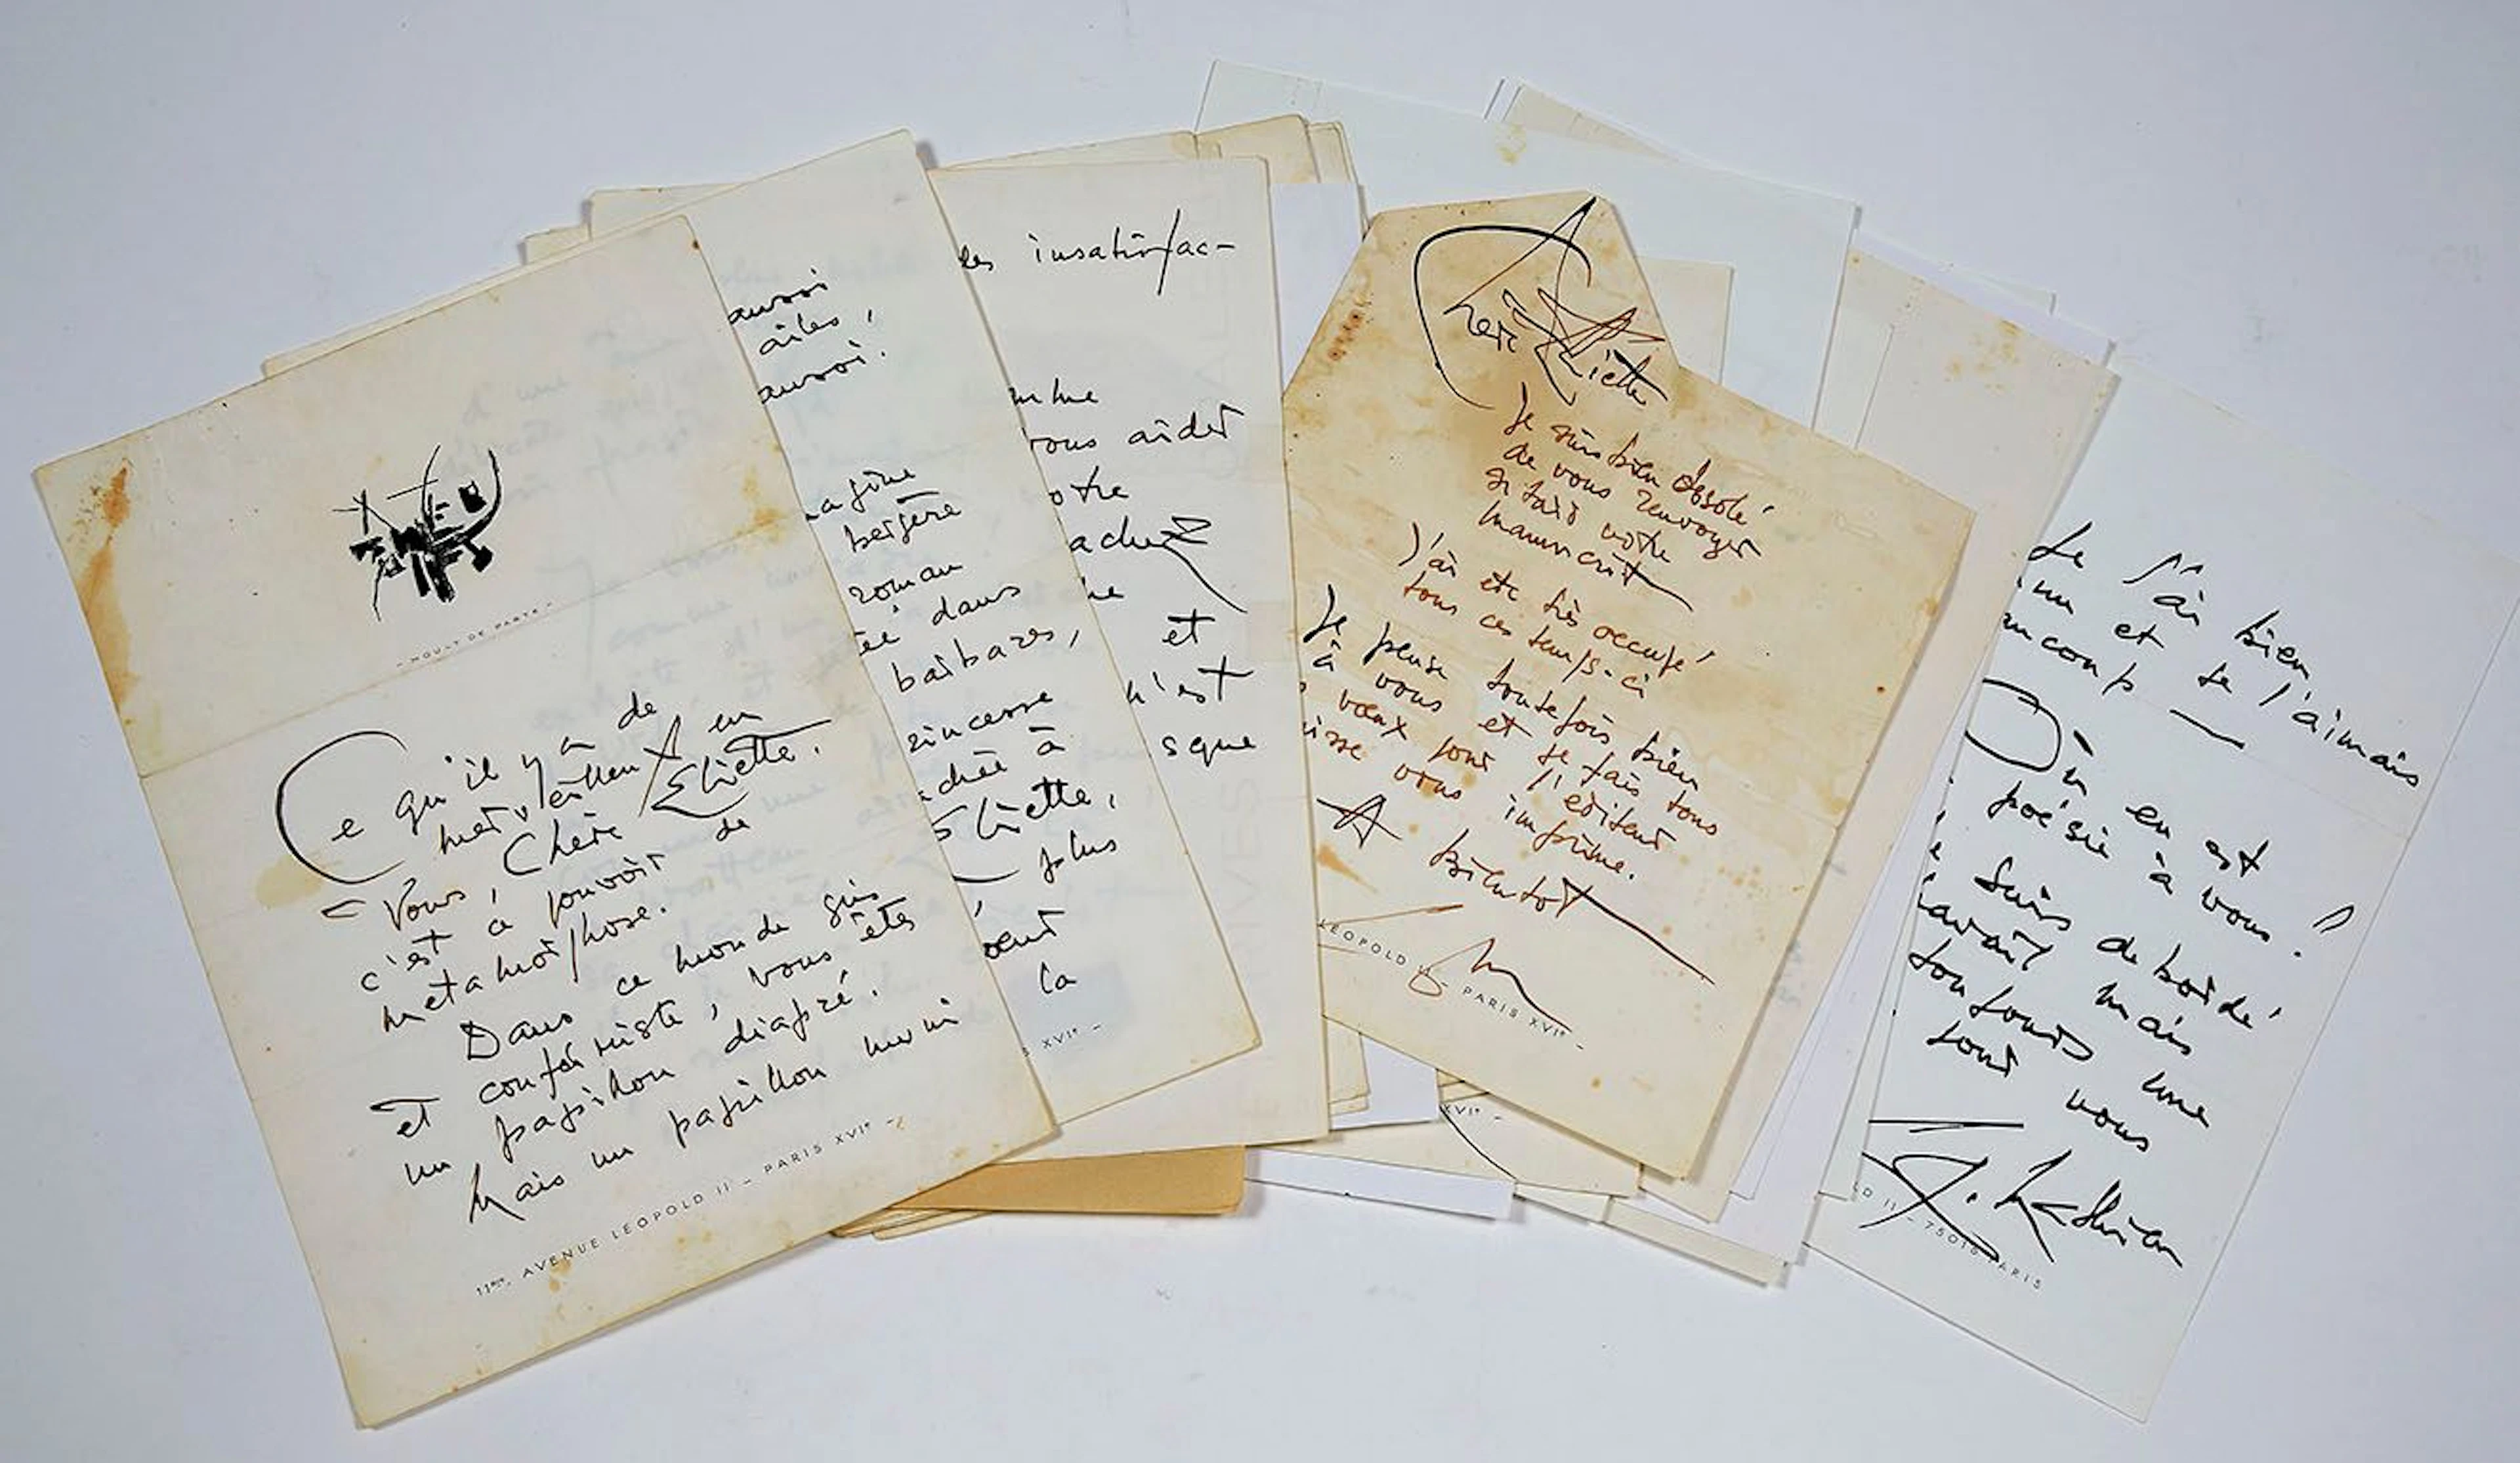 - MOULT DE PARTS -
Ce qu'il y a de
merveilleux en
Vous, Chère Eliette.
c'est ce pouvoir de
métamorphose.
Dans ce monde gris
et conformiste, vous êtes
un papillon diapré.
Mais un papillon muni
11BIS, AVENUE LÉOPOLD II - PARIS XVIe -
aussi
ailes,
aussi.
agine
bergère
roman
ée dans
barbares,
rincesse
chée à
Eliette,
plus
œur
la
S XVIe -
les insatisfac-
mme
vous aider
otre
achez
ne
et
n'est
sque
Chère Eliette
Je suis bien désolé
de vous renvoyer
si tard votre
manuscrit
J'ai été très occupé
tous ces temps-ci
Je pense toutefois bien
à vous et je fais tous
vœux pour l'éditeur
isse vous imprime.
A bientôt
LÉOPOLD II - PARIS XVIe -
XVIe -
Je l'ai bien
nnu et je l'aimais
aucoup
Où en est
poésie à vous?
e suis débordé
travail mais
toujours une
pour vous
G. Mathieu
LD II - 75016 PARIS